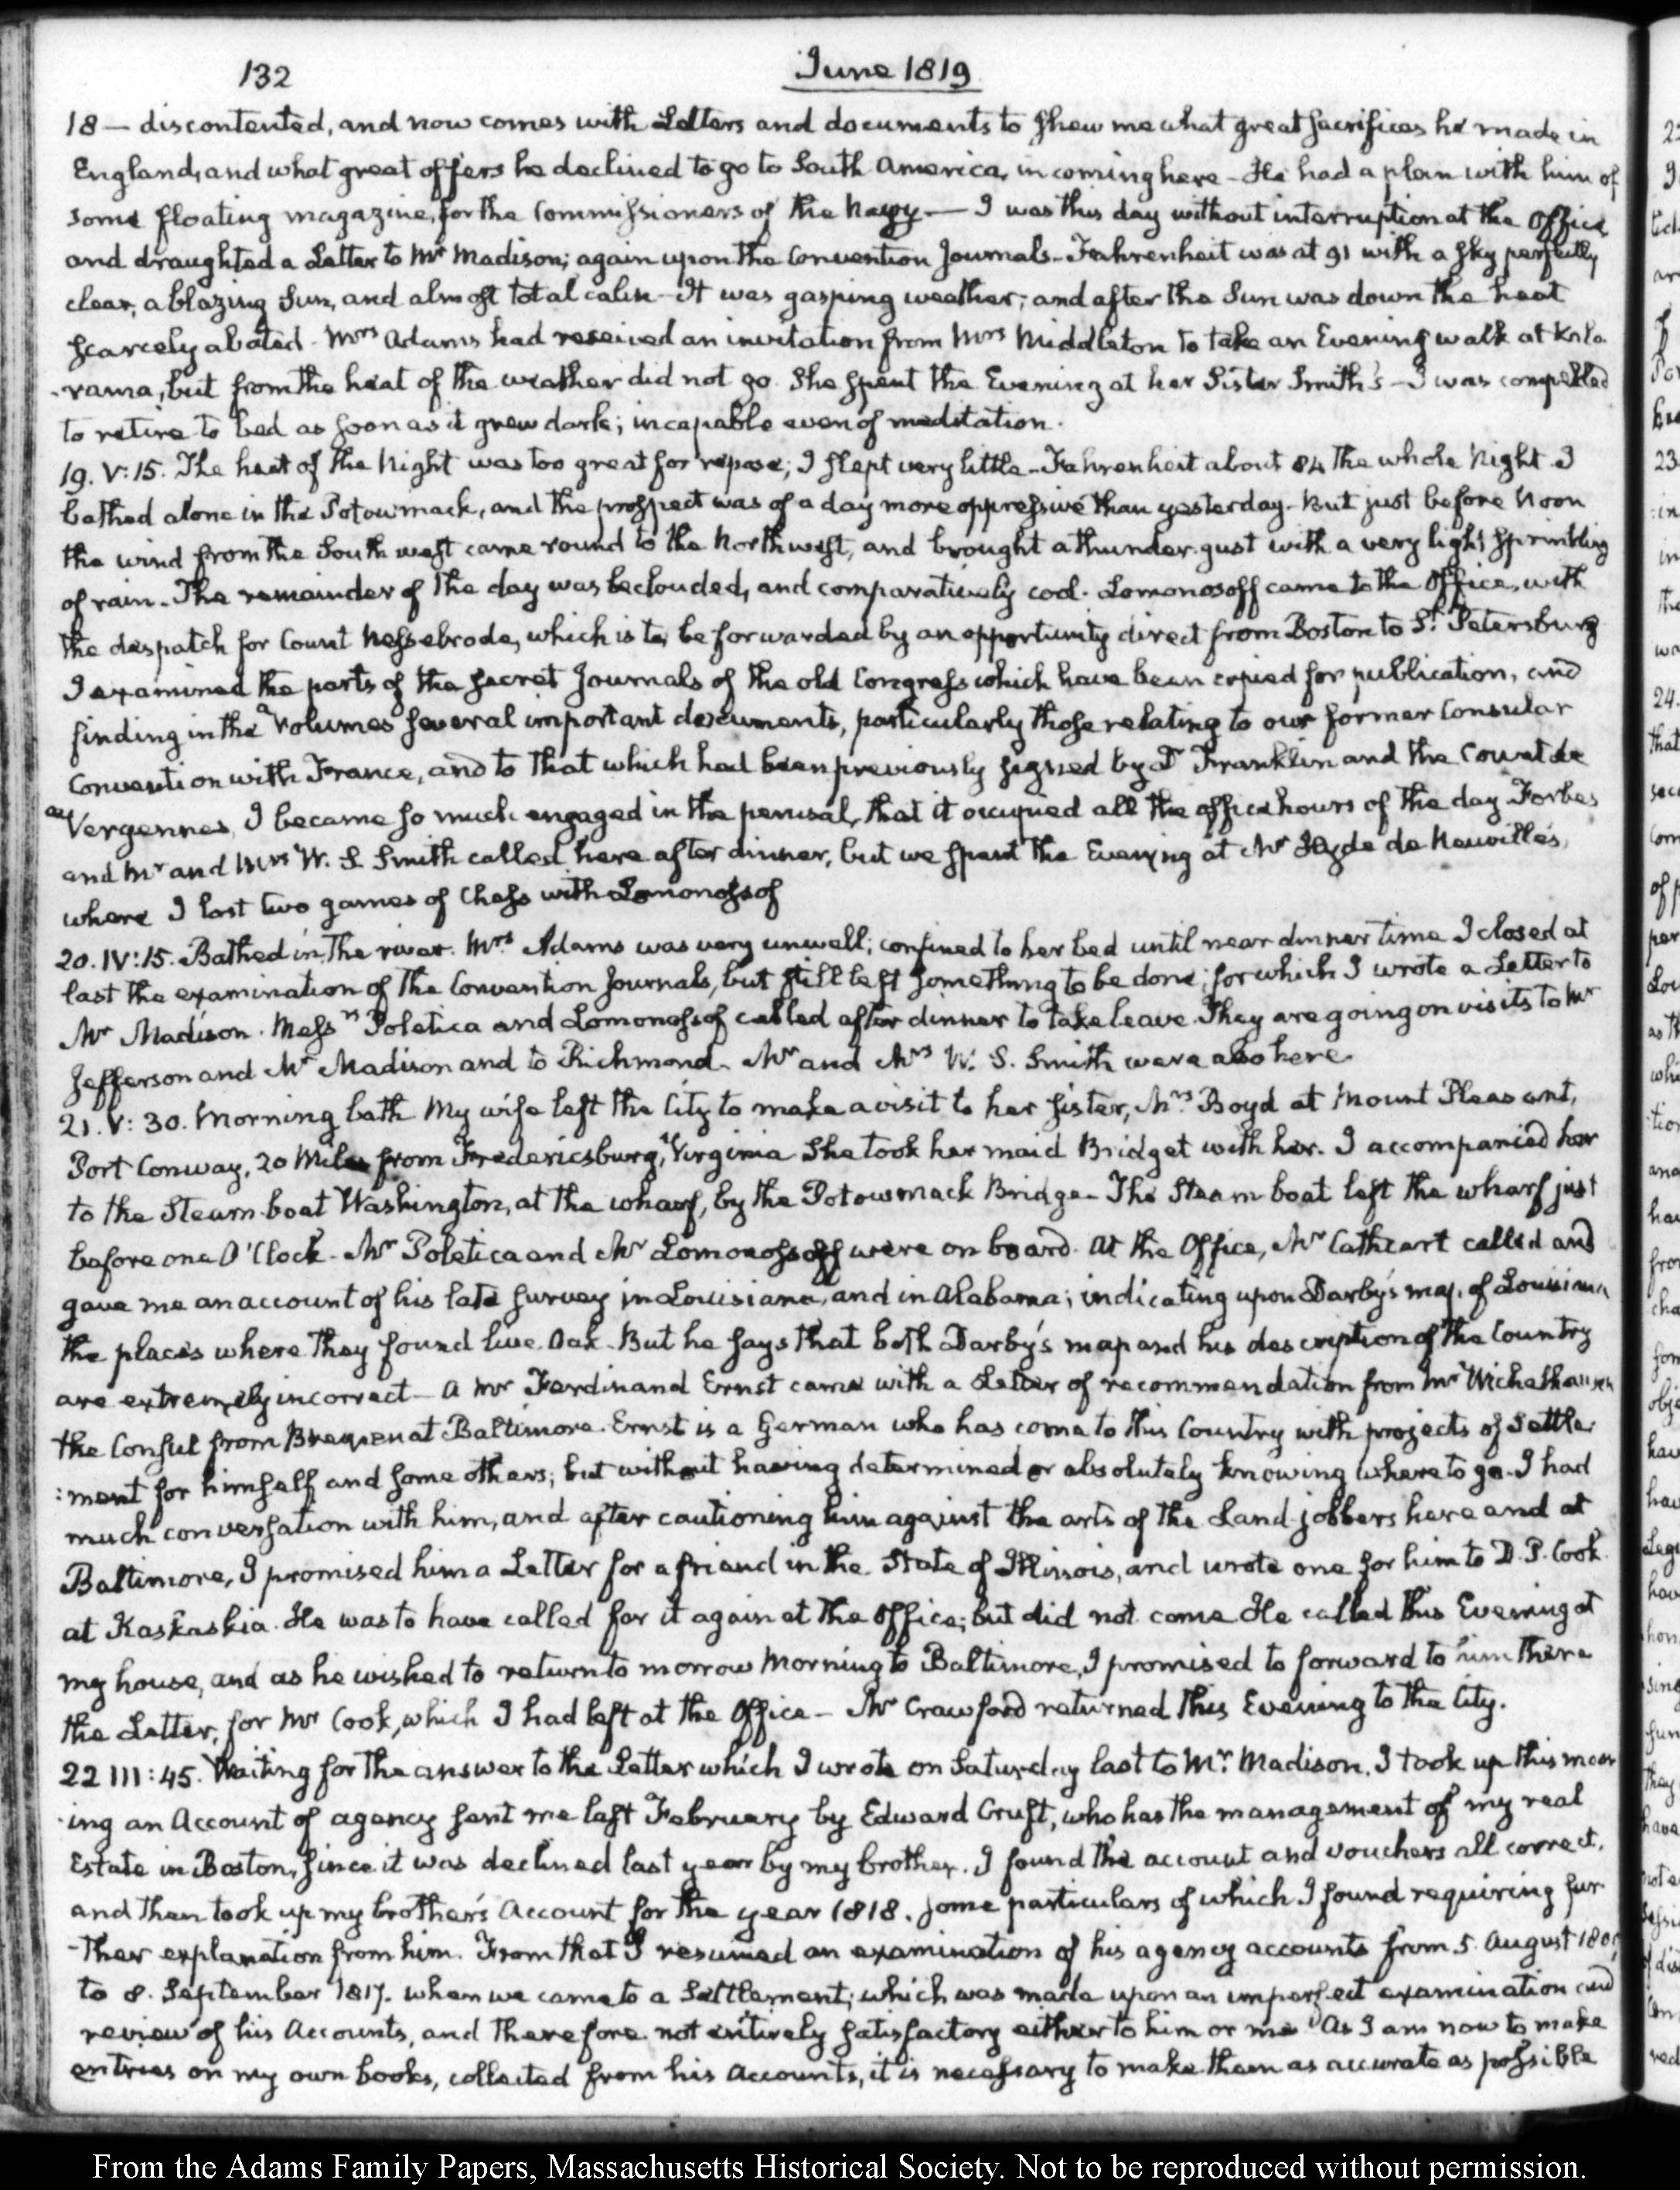 132
June 1819
18 — discontented, and now comes with Letters and documents to shew me what great sacrifices he made in
England, and what great offers he declined to go to South America, in coming here - He had a plan with him of
some floating magazine, for the Commissioners of the Navy — I was this day without interruption at the Office,
and draughted a Letter to Mr Madison; again upon the Convention Journals - Fahrenheit was at 91 with a sky perfectly
clear, a blazing Sun, and almost total calm - It was gasping weather; and after the Sun was down the heat
scarcely abated - Mrs Adams had received an invitation from Mrs Middleton to take an Evening walk at Kala-
-rama, but from the heat of the weather did not go. She spent the Evening at her Sister Smith's - I was compelled
to retire to bed as soon as it grew dark; incapable even of meditation.
19. V:15. The heat of the Night was too great for repose; I slept very little - Fahrenheit about 84 the whole Night. I
bathed alone in the Potowmack, and the prospect was of a day more oppressive than yesterday - But just before Noon
the wind from the South west came round to the Northwest, and brought a thunder-gust with a very light sprinkling
of rain - The remainder of the day was beclouded, and comparatively cool. Lomonosoff came to the Office, with
the despatch for Count Nesselrode, which is to be forwarded by an opportunity direct from Boston to St. Petersburg
I examined the parts of the secret Journals of the old Congress which have been copied for publication, and
finding in the Volumes several important documents, particularly those relating to our former Consular
Convention with France, and to that which had been previously signed by Dr Franklin and the Count de
Vergennes, I became so much engaged in the perusal, that it occupied all the office hours of the day. Forbes
and Mr and Mrs W. S. Smith called here after dinner, but we spent the Evening at Mr Hyde de Neuville's,
where I lost two games of Chess with Lomonossof
20. IV:15. Bathed in the river. Mrs Adams was very unwell; confined to her bed until near dinner time. I closed at
last the examination of the Convention Journals, but still left something to be done; for which I wrote a Letter to
Mr Madison. Messrs Poletica and Lomonossof called after dinner to take leave. They are going on visits to Mr
Jefferson and Mr Madison and to Richmond - Mr and Mrs W. S. Smith were also here.
21. V:30. Morning bath. My wife left the City to make a visit to her Sister, Mrs Boyd at Mount Pleasant,
Port Conway, 20 Miles from Fredericsburg, Virginia. She took her maid Bridget with her. I accompanied her
to the Steam-boat Washington, at the wharf, by the Potowmack Bridge - The Steam boat left the wharf just
before one O'Clock - Mr Poletica and Mr Lomonossoff were on board. At the Office, Mr Cathcart called and
gave me an account of his late survey in Louisiana, and in Alabama; indicating upon Darby's map of Louisiana
the places where they found live Oak. But he says that both Darby's map and his description of the Country
are extremely incorrect - A Mr Ferdinand Ernst came with a Letter of recommendation from Mr Wichelhausen
the Consul from Bremen at Baltimore. Ernst is a German who has come to this Country with projects of Settle-
:ment for himself and some others; but without having determined or absolutely knowing where to go - I had
much conversation with him, and after cautioning him against the arts of the Land-jobbers here and at
Baltimore, I promised him a Letter for a friend in the State of Illinois, and wrote one for him to D. P. Cook
at Kaskaskia. He was to have called for it again at the Office; but did not come. He called this Evening at
my house, and as he wished to return to morrow Morning to Baltimore, I promised to forward to him there
the Letter, for Mr Cook, which I had left at the Office - Mr Crawford returned this Evening to the City.
22 III:45. Waiting for the answer to the Letter which I wrote on Saturday last to Mr. Madison. I took up this morn-
-ing an Account of agency sent me last February by Edward Cruft, who has the management of my real
Estate in Boston, since it was declined last year by my brother. I found the account and vouchers all correct,
and then took up my brother's Account for the year 1818. some particulars of which I found requiring fur-
-ther explanation from him. From that I resumed an examination of his agency accounts from 5. August
to 8. September 1817. when we came to a Settlement; which was made upon an imperfect examination and
review of his Accounts, and therefore not entirely satisfactory either to him or me. As I am now to make
entries on my own books, collected from his Accounts, it is necessary to make them as accurate as possible
From the Adams Family Papers, Massachusetts Historical Society. Not to be reproduced without permission.